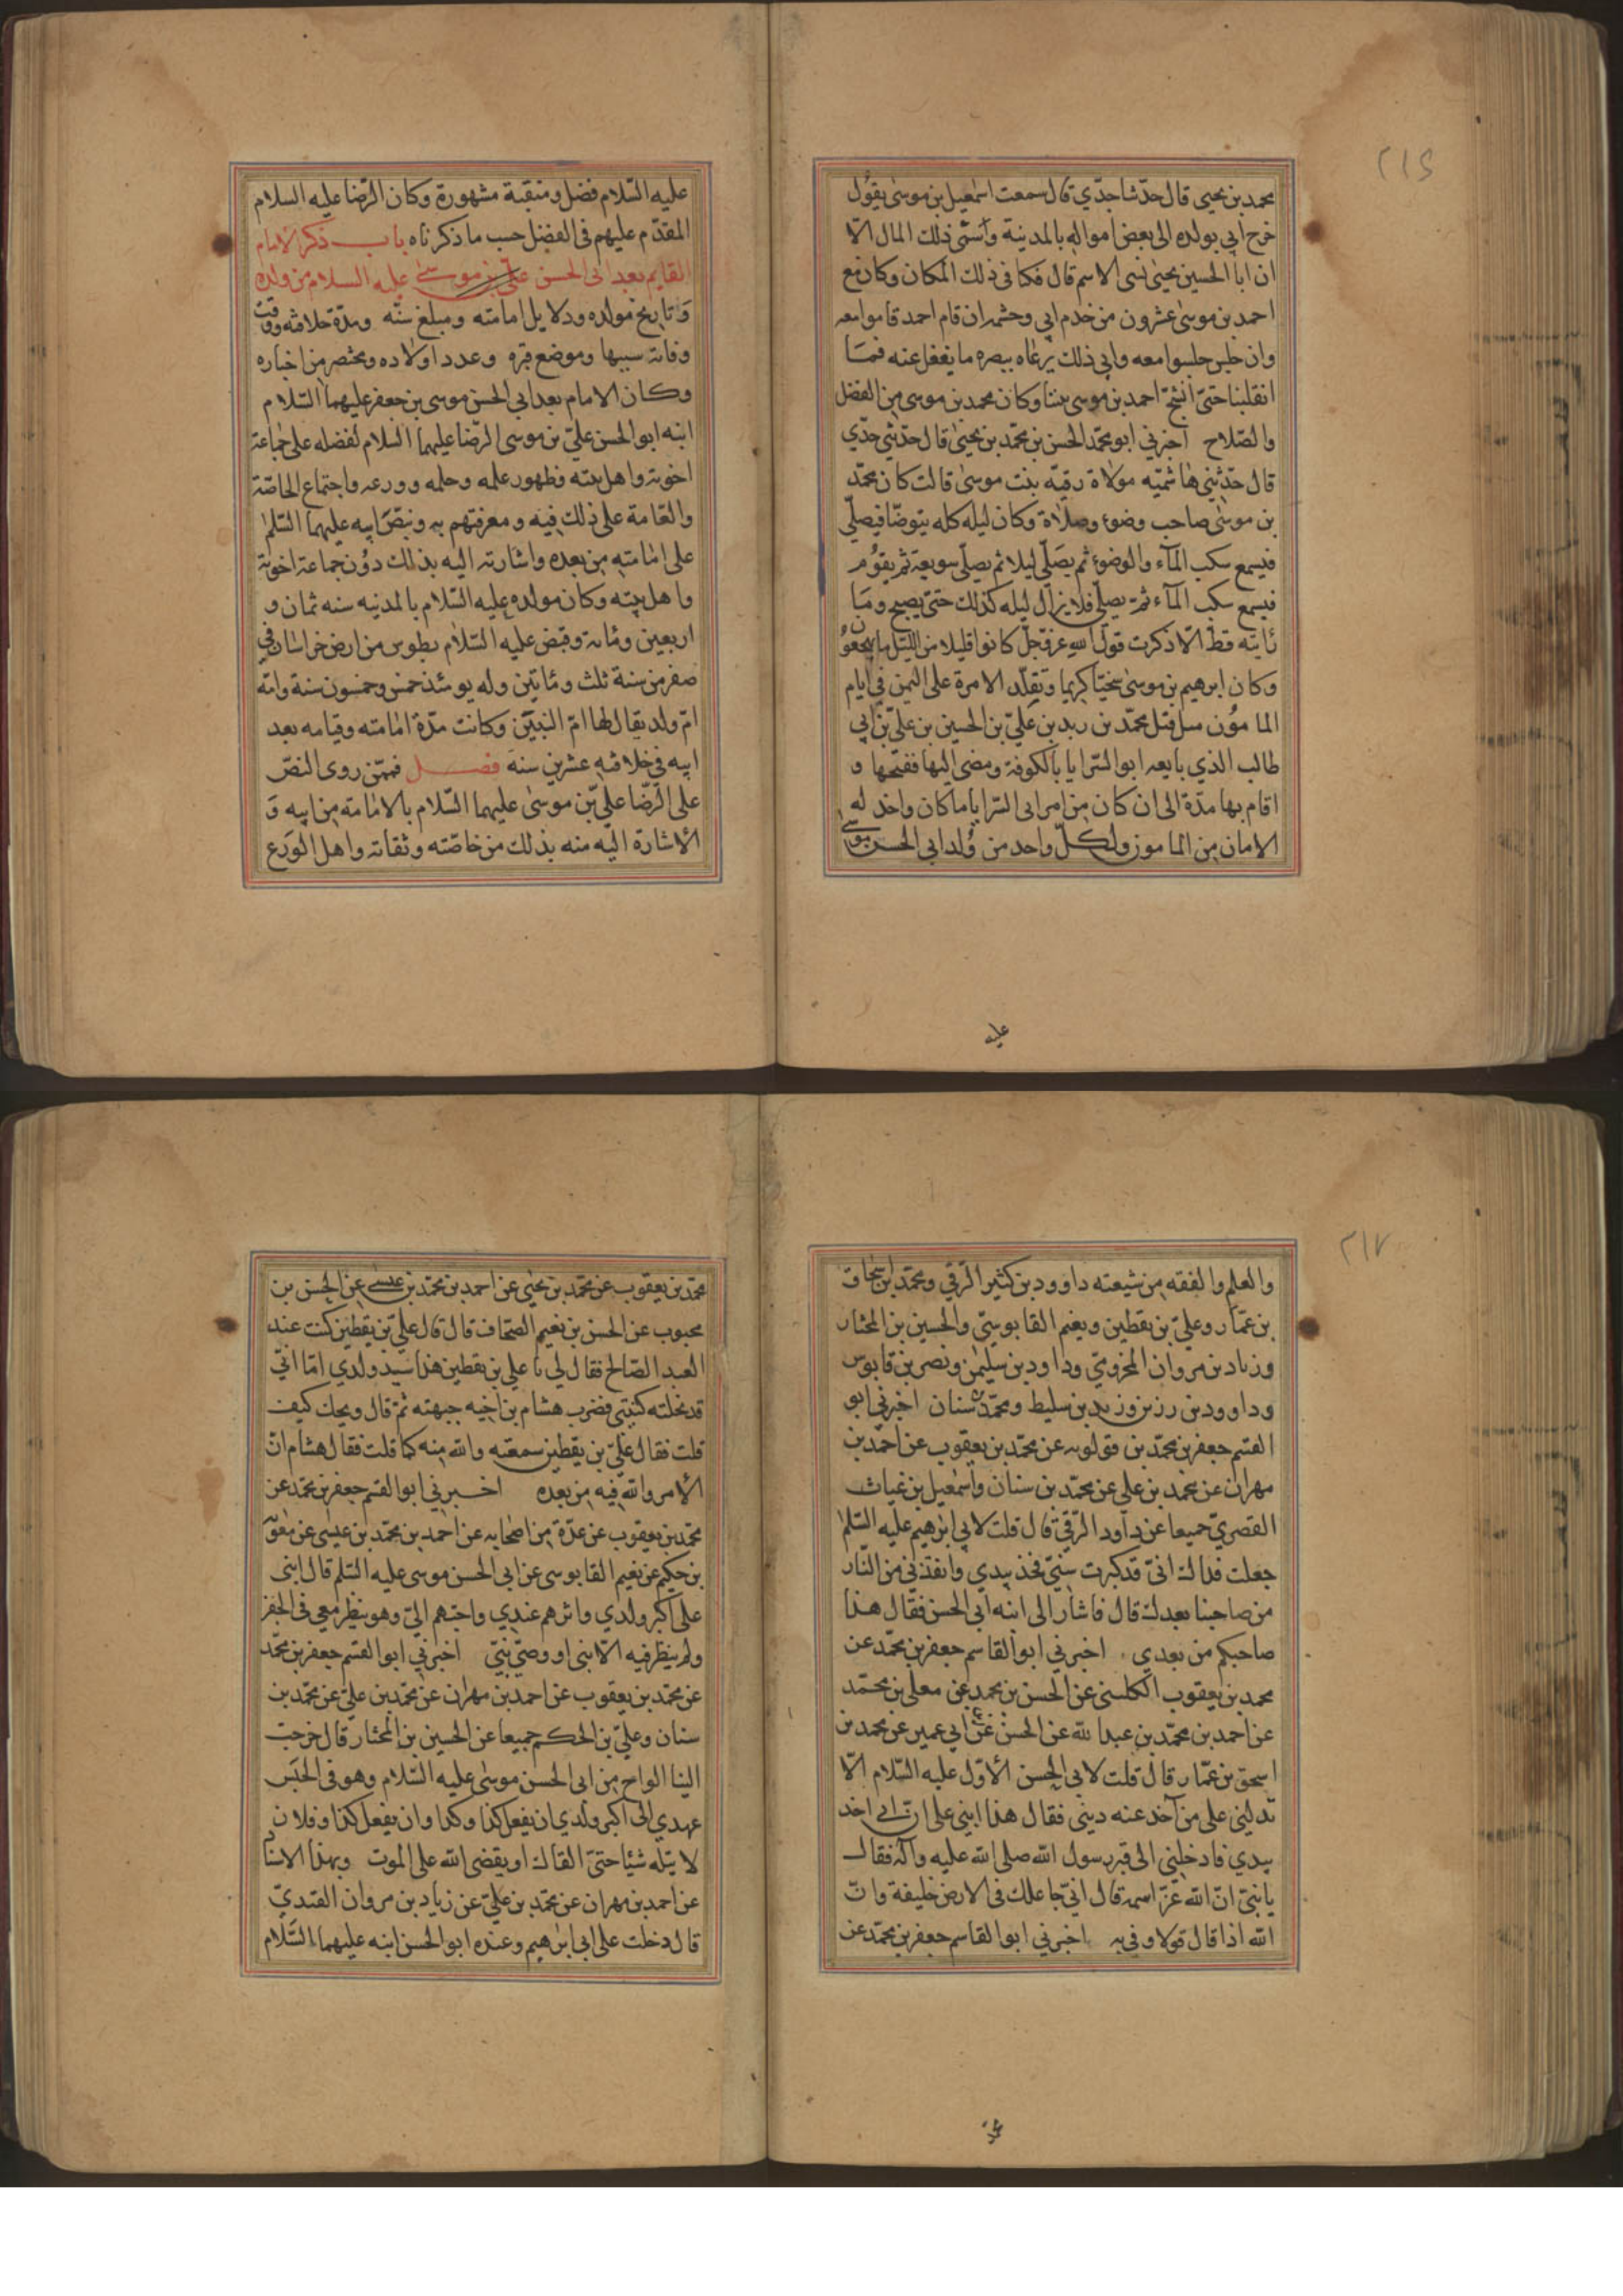 ٢١٦
محمد بن يحيى قال حدثنا جدّي قال سمعت اسمعيل بن موسى يقول
خرج ابي بولده الى بعض امواله بالمدينة وأسمى ذلك المال الا
ان ابا الحسين يحيى نسى الاسم قال فكنا في ذلك المكان وكان مع
احمد بن موسى عشرون من خدم ابي وحشمه ان قام احمد قاموا معه
وان جلس جلسوا معه وابي ذلك يرعاه ببصره ما يغفل عنه فما
انقلبنا حتى انشج احمد بن موسى بيننا وكان محمد بن موسى من الفضل
والصّلاح اخبرني ابو محمّد الحسن بن محمّد بن يحيى قال حدّثني جدّي
قال حدّثتني هاشميّه مولاة رقيّه بنت موسى قالت كان محمّد
بن موسى صاحب وضوء وصلاة وكان ليله كله يتوضّا فيصلّي
فيسمع سكب المآء والوضوء ثم يصَلّي ليلا ثم يصلّي سويعة ثم يقوُم
فيسمع سكب المآء ثمّ يصلّي فلا يزال ليله كذلك حتىّ يصبح ومَا
رايته قط الّا ذكرت قول اللهِ عزّ وجلّ كانوا قليلا من الليّل ما يهجعوُن
وكان ابرهيم بن موسىٰ سخيّا كريما وتقلّد الامرة على اليمن في ايام
الماموُن من قبل محمّد بن زيد بن عَليّ بن الحسين بن عليّ بن ابي
طالب الذي بايعه ابو السّرايا بالكوفة ومضى اليها ففتحها و
اقام بها مدّة الى ان كان من امر ابى السّرايا ما كان واخذ له
الامان من المامون ولكلّ واحد من وُلد ابي الحسن موسىٰ
عليه
عليه السّلام فضل ومنقبة مشهورة وكان الرّضا عليه السلام
المقدّم عليهم فى الفضل حسب ما ذكرناه باب ذكر الامام
القايم بعد ابى الحسن علىّ بن موسىٰ عليه السلام من ولده
وَتاريخ مولده ودلايل امامته ومبلغ سنّه ومدّة خلافته ووقت
وفاته سببها وموضع قبره وعدد اولاده ومختصر من اخباره
وكان الامام بعد ابي الحسن موسى بن جعفر عليهما السّلام
ابنه ابو الحسن عليّ بن موسى الرّضا عليهما السّلام لفضله على جماعة
اخوته واهل بيته وظهور علمه وحلمه وورعه واجتماع الخاصّة
والعّامة على ذلك فيه ومعرفتهم به وبنصّ ابيه عليهما السّلم
على امامته من بعده واشارته اليه بذلك دوُن جماعة اخوته
واهل بيته وكان مولده عليه السّلام بالمدنيه سنه ثمان و
اربعين ومائة وقبض عليه السّلام بطوس من ارض خراسان في
صفر من سنة ثلث ومائتين وله يومئذ خمس وخمسون سنة وامّه
امّ ولد يقال لها امّ النبيّن وكانت مدّة امامته وقيامه بعد
ابيه في خلافته عشرين سنة فصل فممّن روى النصّ
على الرّضا عليّ بن موسىٰ عليهما السّلام بالامامة من ابيه وَ
الأشارة اليه منه بذلك من خاصّته وثقاته واهل الوَرع
٢١٧
والعلم والفقه من شيعته داوود بن كثير الرّقي ومحمّد بن اسحاق
بن عمّار وعليّ بن يقطين ونعيم القابوسيّ والحسين بن المختار
وزياد بن مروان المخزومي وداود بن سليمٰن ونصر بن قابوس
وداوود بن رزين وزيد بن سليط ومحمّد بن سنان اخبرني ابو
القسم جعفر بن محمّد بن قولويه عن محمّد بن يعقوب عن احمد بن
مهران عن محمد بن علي عن محمّد بن سنان واسمٰعيل بن غياث
القصريّ جميعا عن داود الرّقيّ قال قلت لابي ابرٰهيم عليه السّلم
جعلت فداك انّي قد كبرت سنيّ فخذ بيدي وانقذني من النّار
من صاحبنا بعدك قال فاشار الى ابنه ابي الحسن فقال هذا
صاحبكم من بعدي اخبرني ابو القاسم جعفر بن محمّد عن
محمد بن يعقوب الكلينى عن الحسن بن محمد عن معلى بن محمّد
عن احمد بن محمّد بن عبد الله عن الحسن عن ابي عمير عن محمد بن
اسحق بن عمّار قال قلت لابي الحسن الأوّل عليه السّلام الّا
تدلني على من آخذ عنه ديني فقال هذا ابني على انّ ابي اخذ
بيدي فادخلني الى قبر رسول الله صلى الله عليه وآله فقال
يا بنيّ انّ الله عزّ اسمه قال انيّ جاعلك في الارض خليفة وانّ
الله اذا قال قولا وفى به اخبرني ابو القاسم جعفر بن محمّد عن
محمد
محمّد بن يعقوب عن محمّد بن يحيى عن احمد بن محمّد بن عيسىٰ عن الحسن بن
محبوب عن الحسن بن نعيم الصحّاف قال قال عليّ بن يقطين كنت عند
العبد الصّالح فقال لي يا علي بن يقطين هذا سيّد ولدي امّا انّي
قد نحلته كنيتي فضرب هشام بن اخيه جبهته ثمّ قال ويحك كيف
قلت فقال عليّ بن يقطين سمعته والله منه كما قلت فقال هشام انّ
الأمر والله فيه من بعده اخبرني ابو القسم جعفر بن محمّد عن
محمّد بن يعقوب عن عدّة من اصحابه عن احمد بن محمّد بن عيسى عن معوية
بن حكيم عن نعيم القابوسى عن ابى الحسن موسى عليه السّلم قال ابنى
على اكبر ولدي واثرهم عندي واحبّهم اليّ وهو ينظر معي فى الجفر
ولم ينظر فيه الّا نبى او وصيّ نبيّ اخبرني ابو القسم جعفر بن محمّد
عن محمّد بن يعقوب عن احمد بن مهران عن محمّد بن عليّ عن محمّد بن
سنان وعليّ بن الحكم جميعا عن الحسين بن المختار قال خرجت
الينا الواح من ابى الحسن موسىٰ عليه السّلام وهو فى الحبَس
عهدي الى اكبر ولدي ان يفعل كذا وكذا وان يفعل كذا وفلان
لا تنله شيئا حتىّ القاك او يقضى الله على الموت وبهذا الاسناد
عن احمد بن مهران عن محمّد بن عليّ عن زياد بن مروان القنديّ
قال دخلت على ابي ابرٰهيم وعنده ابو الحسن ابنه عليهما السَّلام